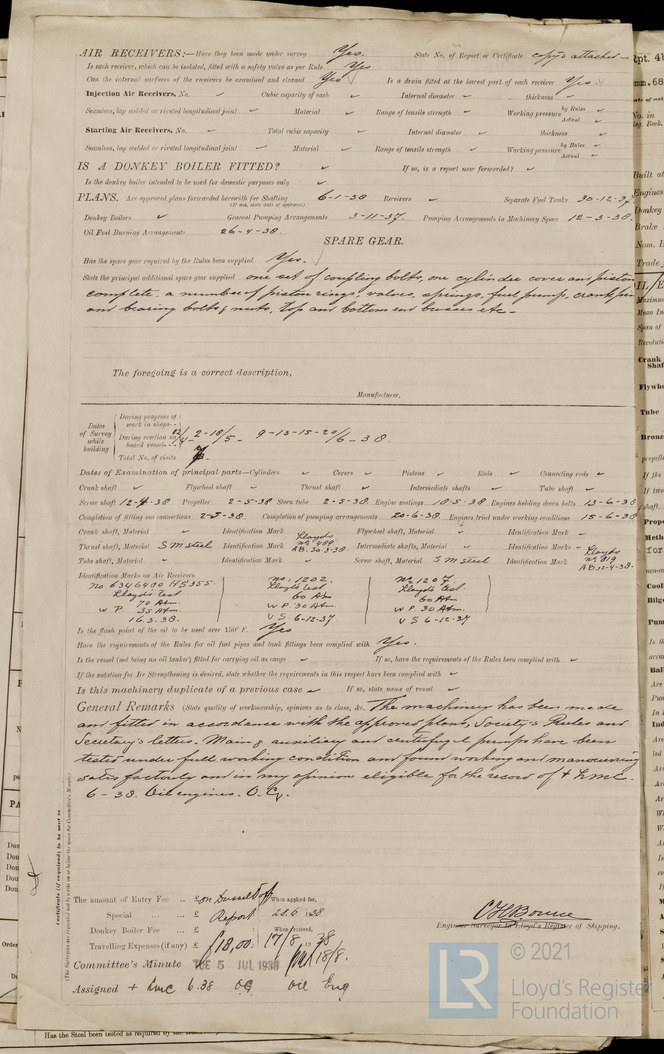 AIR RECEIVERS:—Have they been made under survey Yes. State No. of Report or Certificate copy's attached—
Is each receiver, which can be isolated, fitted with a safety valve as per Rule Yes
Can the internal surfaces of the receivers be examined and cleaned Yes Is a drain fitted at the lowest part of each receiver Yes.
Injection Air Receivers, No. ✓ Cubic capacity of each ✓ Internal diameter ✓ thickness ✓
Seamless, lap welded or riveted longitudinal joint ✓ Material ✓ Range of tensile strength ✓ Working pressure by Rules ✓ Actual ✓
Starting Air Receivers, No. ✓ Total cubic capacity ✓ Internal diameter ✓ thickness ✓
Seamless, lap welded or riveted longitudinal joint ✓ Material ✓ Range of tensile strength ✓ Working pressure by Rules ✓ Actual ✓
IS A DONKEY BOILER FITTED? ✓ If so, is a report now forwarded? ✓
Is the donkey boiler intended to be used for domestic purposes only ✓
PLANS. Are approved plans forwarded herewith for Shafting 6-1-38 Receivers ✓ Separate Fuel Tanks 30-12-37
(If not, state date of approval)
Donkey Boilers ✓ General Pumping Arrangements 3-11-37. Pumping Arrangements in Machinery Space 12-3-38.
Oil Fuel Burning Arrangements 26-4-38.
SPARE GEAR.
Has the spare gear required by the Rules been supplied Yes.
State the principal additional spare gear supplied one set of coupling bolts, one cylinder cover and piston
complete, a number of piston rings, valves, springs, fuel pump, crank pin
and bearing bolts & nuts, top and bottom end brasses etc—
The foregoing is a correct description,
Manufacturer.
Dates of Survey while building
During progress of work in shops - -
During erection on board vessel - - 2-18/5- 9-13-15-20/6-38.
Total No. of visits
Dates of Examination of principal parts—Cylinders ✓ Covers ✓ Pistons ✓ Rods ✓ Connecting rods ✓
Crank shaft ✓ Flywheel shaft ✓ Thrust shaft ✓ Intermediate shafts ✓ Tube shaft ✓
Screw shaft 12-4-38 Propeller 2-5-38 Stern tube 2-5-38. Engine seatings 18-5-38 Engines holding down bolts 13-6-38
Completion of fitting sea connections 2-5-38. Completion of pumping arrangements 20-6-38. Engines tried under working conditions 15-6-38
Crank shaft, Material ✓ Identification Mark ✓ Flywheel shaft, Material ✓ Identification Mark ✓
Thrust shaft, Material S M steel Identification Mark Lloyds No 409 AB. 30-3-38. Intermediate shafts, Material ✓ Identification Marks - Lloyds No 819 AB. 12-4-38
Tube shaft, Material ✓ Identification Mark ✓ Screw shaft, Material S M steel Identification Mark
Identification Marks on Air Receivers
No 6346480 H5355. No: 1202. No: 1207.
Lloyds Test Lloyds Test Lloyds Test.
70 Atm. 60 Atm 60 Atm
W P. 35 Atm. W P. 30 Atm. W P. 30 Atm.
16.3.38. V S. 6-12-37 V S 6-12-37
Is the flash point of the oil to be used over 150° F. Yes
Have the requirements of the Rules for oil fuel pipes and tank fittings been complied with Yes.
Is the vessel (not being an oil tanker) fitted for carrying oil as cargo ✓ If so, have the requirements of the Rules been complied with ✓
If the notation for Ice Strengthening is desired, state whether the requirements in this respect have been complied with ✓
Is this machinery duplicate of a previous case ✓ If so, state name of vessel ✓
General Remarks (State quality of workmanship, opinions as to class, &c. The machinery has been made
and fitted in accordance with the approved plans, Society's Rules and
Secretary's letters. Main, auxiliary and centrifugal pumps have been
tested under full working condition and found working and manœuvring
satisfactorily and in my opinion eligible for the record of + LMC.
6-38. Oil engines. O.G.
Certificate (if required) to be sent to
(The Surveyors are requested not to write on or below the space for Committee's Minute.)
The amount of Entry Fee .. £ on Dusseldorf When applied for,
Special ... ... £ Report 28.6.38
Donkey Boiler Fee ... £ When received,
Travelling Expenses (if any) £ £18,00. 17/8 38
18/8.
Engineer Surveyor to Lloyd's Register of Shipping.
Committee's Minute TUE 5 JUL 1938
Assigned + Lmc 6.38 OG Oil Eng
© 2021
LR
Lloyd's Register
Foundation
Has the Steel been tested as required by
Rpt. 4b
No. in
Reg. Book.
Built at
Engines
Donkey
Brake
Nom. H
Trade
Maximum
Mean In
Span of
Revoluti
Crank
Shaf
Flywhe
Tube
Bronz
propelle
If the
If two
shaft.
Prope
Meth
for
Cool
Bilge
Pum
Are